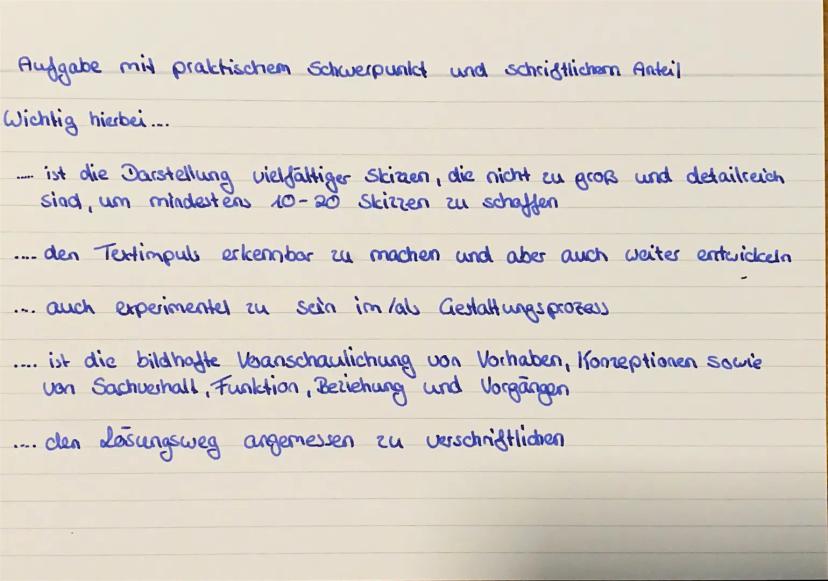 Aufgabe mit praktischem Schwerpunkt und schriftlichem Anteil
Wichtig hierbei...
.... ist die Darstellung vielfältiger Skizzen, die nicht zu groß und detailreich
sind, um mindestens 10-20 Skizzen zu schaffen
.... den Textimpuls erkennbar zu machen und aber auch weiter entwickeln
... auch experimentel zu sein im/als Gestaltungsprozess
.... ist die bildhafte Veranschaulichung von Vorhaben, Konzeptionen sowie
von Sachverhalt, Funktion, Beziehung und Vorgängen
.... den Lösungsweg angemessen zu verschriftlichen